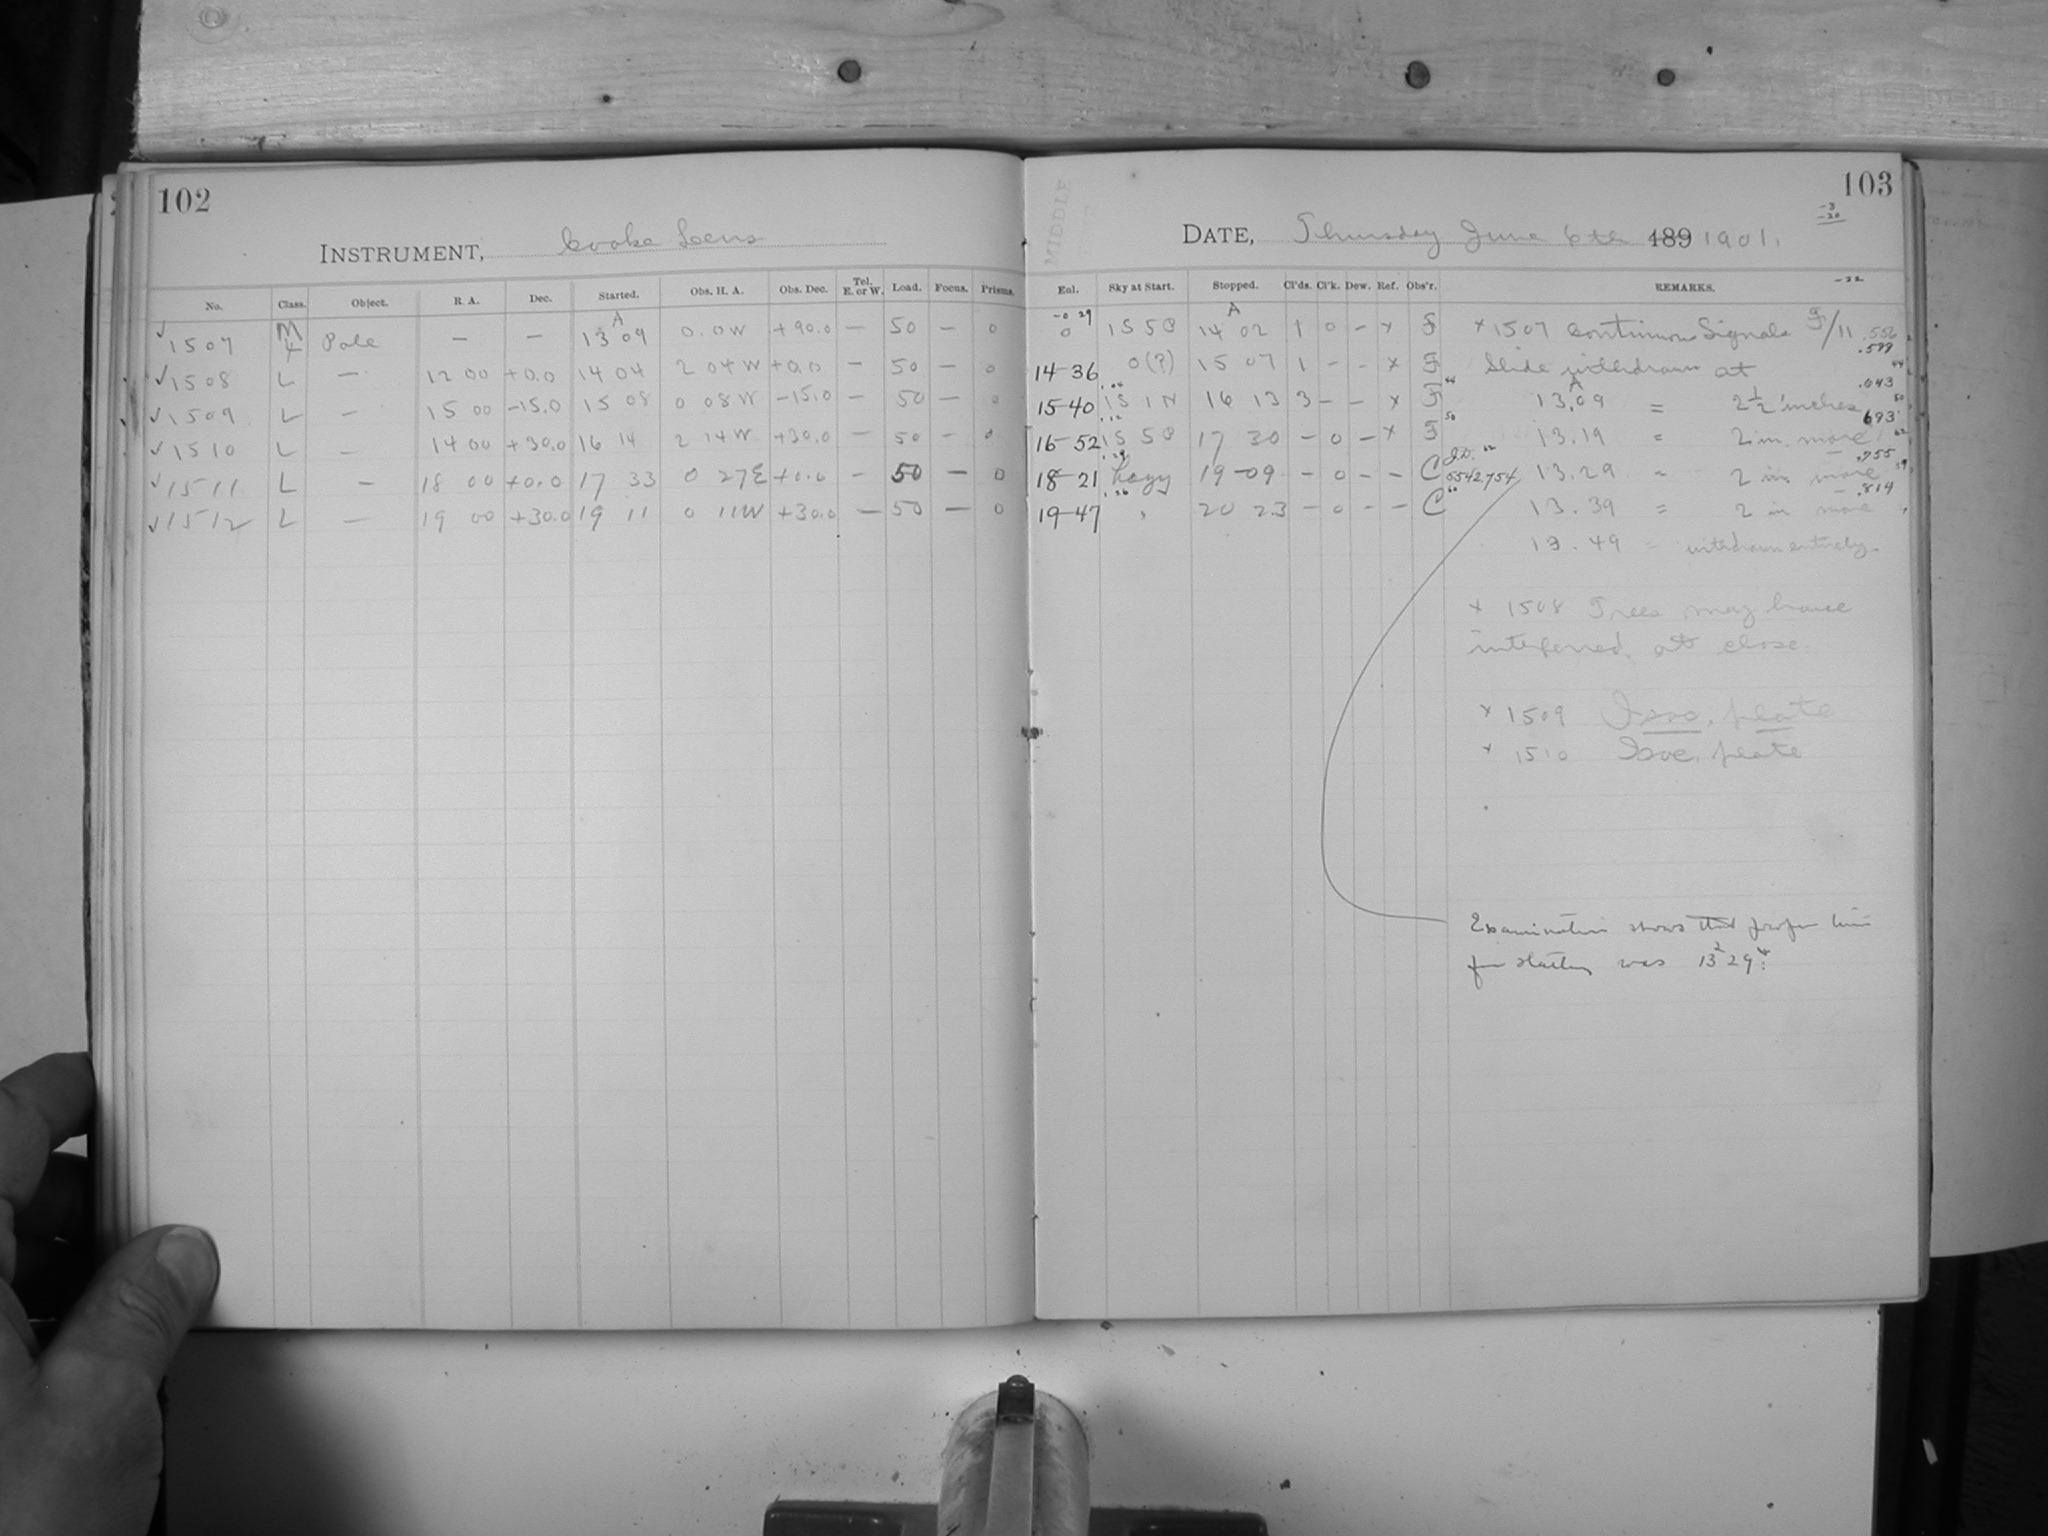 102
INSTRUMENT, Cooke Lens
No. Class. Object. R. A. Dec. Started. Obs. H. A. Obs. Dec. Tel. E. or W. Load. Focus. Prisms.
✓1507 M 4 Pole — — 13 A 09 0.0W +90.0 — 50 — 0
✓1508 L — 12 00 +0.0 14 04 2 04W +0.0 — 50 — 0
✓1509 L — 15 00 -15.0 15 08 0 08W -15.0 — 50 — 0
✓1510 L — 14 00 +30.0 16 14 2 14W +30.0 — 50 — 0
✓1511 L — 18 00 +0.0 17 33 0 27E +0.0 — 50 — 0
✓1512 L — 19 00 +30.0 19 11 0 11W +30.0 — 50 — 0
103
-3
-20
MIDDLE
DATE, Thursday June 6th 189 1901.
-22
Exl. Sky at Start. Stopped. Cl'ds. Cl'k. Dew. Ref. Obs'r. REMARKS.
0 14 A 02 1 0 - x F x 1507 Continuous Signals F/11 .556
14-36 0(?) 15 07 1 - - x F Slide withdrawn at .599
15-40 16 13 3 - - x F 13.A09 = 2½ inches .643
16-52 17 30 - 0 - x F 13.19 = 2 in. more 693
18-21 hazy 19-09 - 0 - - C J.D. 5542.754 13.29 = 2 in. more .755
19-47 " 20 23 - 0 - - C 13.39 = 2 in more .814
13.49 = withdrawn entirely.
x 1508 Trees may have
interferred at close.
x 1509 Isoc. plate
x 1510 Isoc. plate
Examination shows that proper time
for starting was 13 29